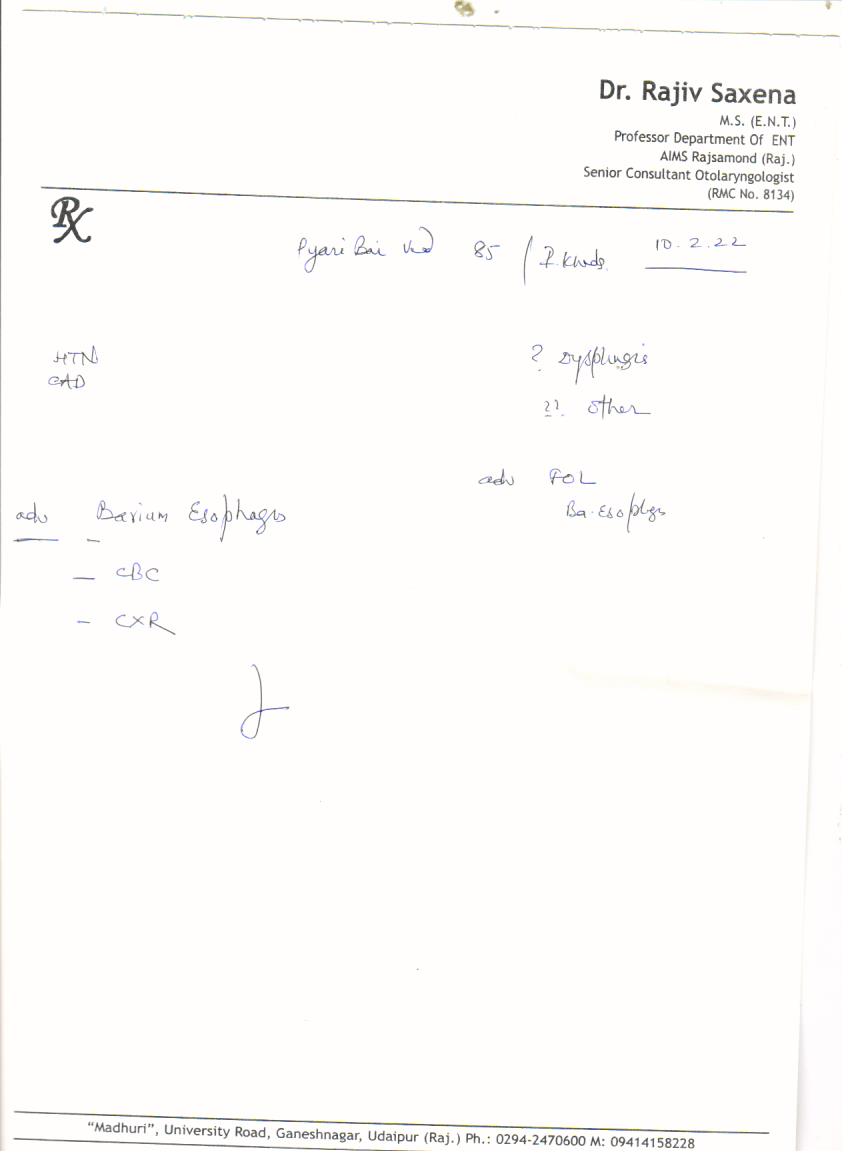 Dr. Rajiv Saxena
M.S. (E.N.T.)
Professor Department Of ENT
AIMS Rajsamond (Raj.)
Senior Consultant Otolaryngologist
(RMC No. 8134)
Rx
Pyari Bai 85 / 10.2.22
HTN
CAD
? Dysphagia
?? other
adv FOL
Ba. Esophgs
adv Barium Esophagus
- CBC
- CXR
"Madhuri", University Road, Ganeshnagar, Udaipur (Raj.) Ph.: 0294-2470600 M: 09414158228